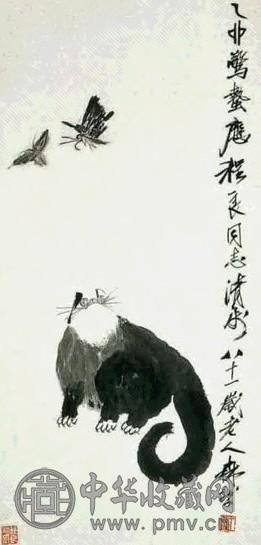 乙卯驚蟄應程良同志清屬八十一歲老人
中华收藏网
www.pmv.cn